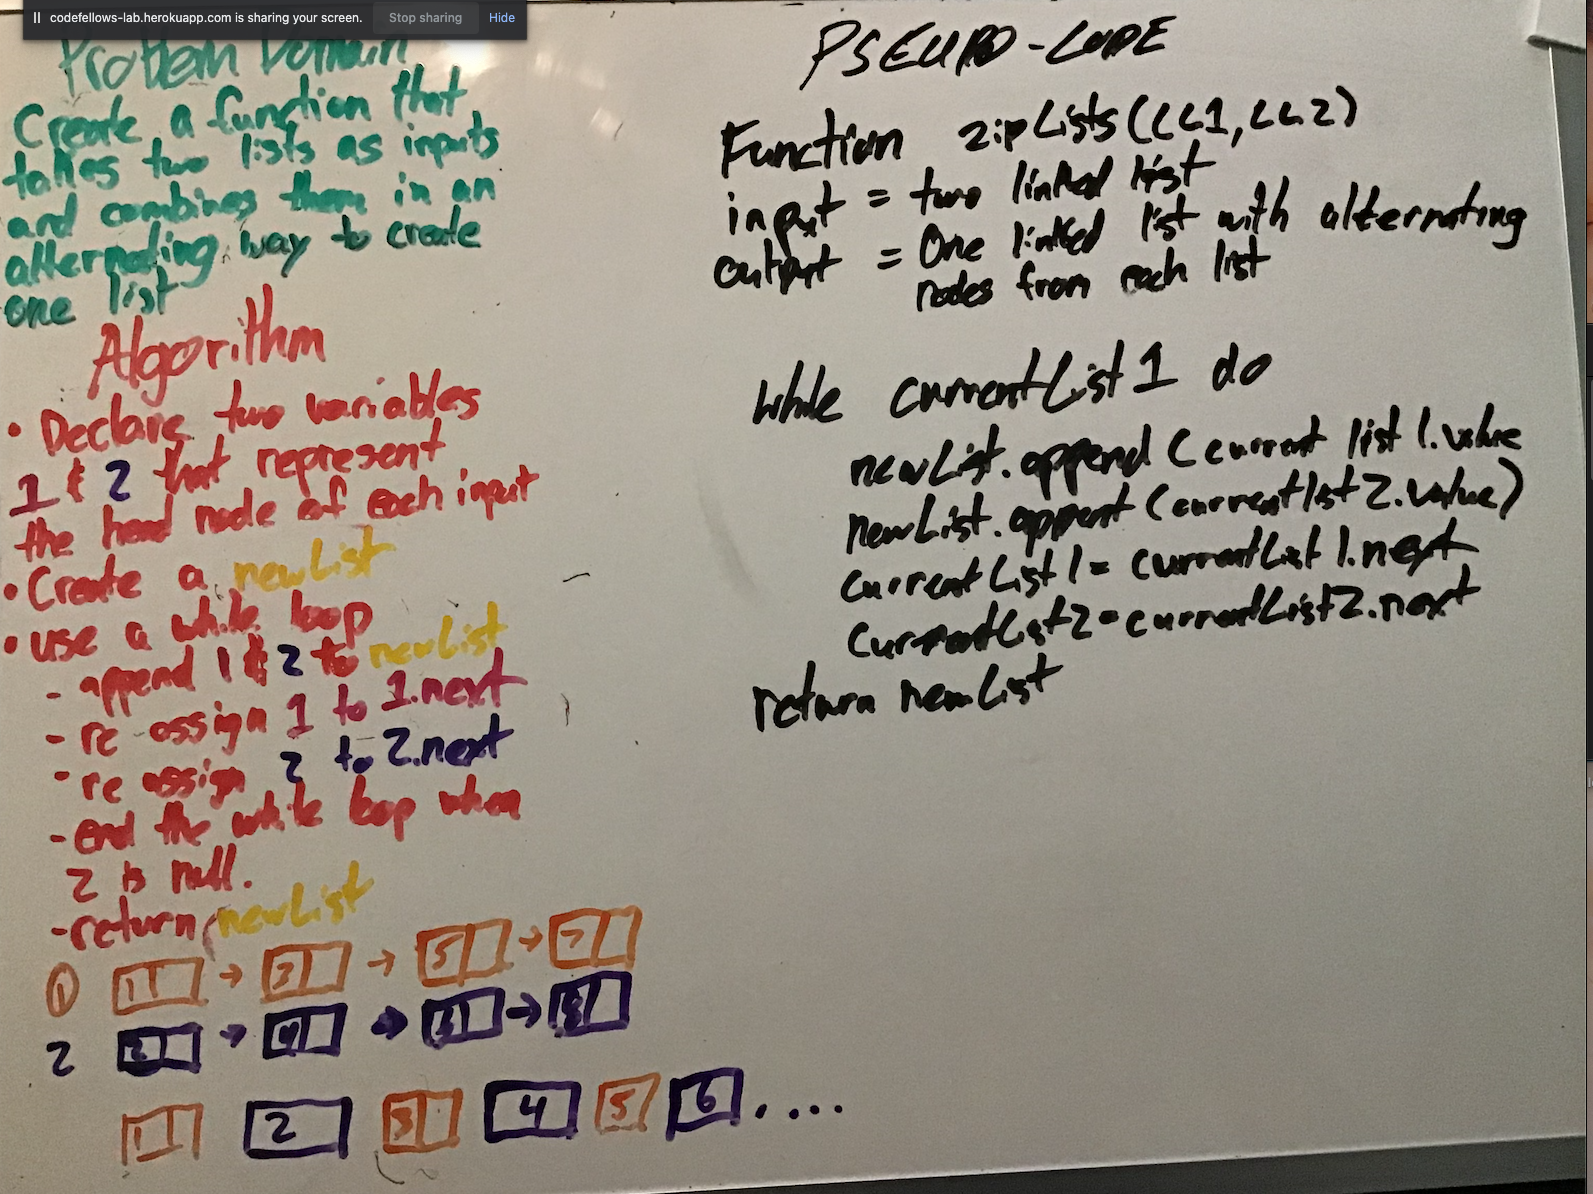 codefellows-lab.herokuapp.com is sharing your screen. Stop sharing Hide
Problem Domain
Create a function that
takes two lists as inputs
and combines them in an
alternating way to create
one list
Algorithm
• Declare two variables
1 & 2 that represent
the head node of each input
• Create a newList
• use a while loop
- append 1 & 2 to newList
- re assign 1 to 1.next
- re assign 2 to 2.next
- end the while loop when
2 is null.
- return newList
1 1 → 3 → 5 → 7
2 2 → 4 → 6 → 8
1 2 3 4 5 6 ....
PSEUDO-CODE
Function zipLists(LL1, LL2)
input = two linked list
output = One linked list with alternating
nodes from each list
while currentList1 do
newList.append (current list 1.value
newList.append (currentlist2.value)
currentList1 = currentList1.next
currentList2 = currentList2.next
return newList